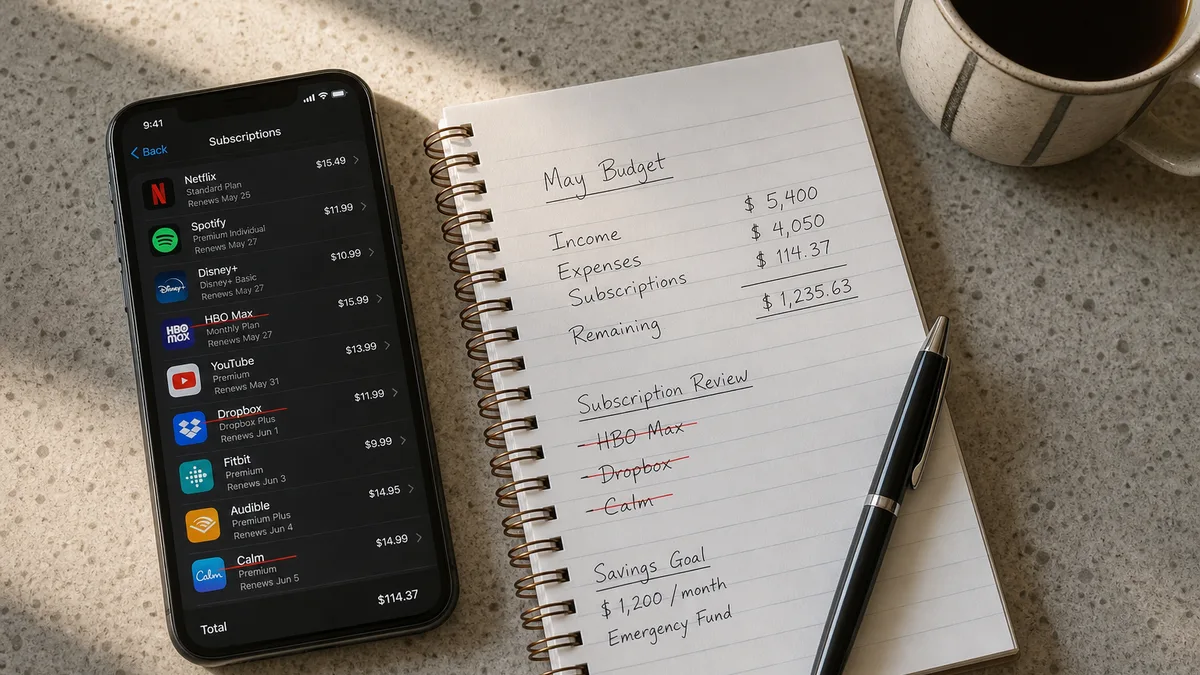 9:41
Back
Subscriptions
N
Netflix
$15.49
Standard Plan
Renews May 25
Spotify
$11.99
Premium Individual
Renews May 27
Disney+
Disney+
$10.99
Disney+ Basic
Renews May 27
HBO
max
HBO Max
$15.99
Monthly Plan
Renews May 27
YouTube
$13.99
Premium
Renews May 31
Dropbox
$11.99
Dropbox Plus
Renews Jun 1
Fitbit
$9.99
Premium
Renews Jun 3
Audible
$14.95
Premium Plus
Renews Jun 4
Calm
Calm
$14.99
Premium
Renews Jun 5
Total
$114.37
May Budget
Income $ 5,400
Expenses $ 4,050
Subscriptions $ 114.37
Remaining $ 1,235.63
Subscription Review
- HBO Max
- Dropbox
- Calm
Savings Goal
$ 1,200 / month
Emergency Fund